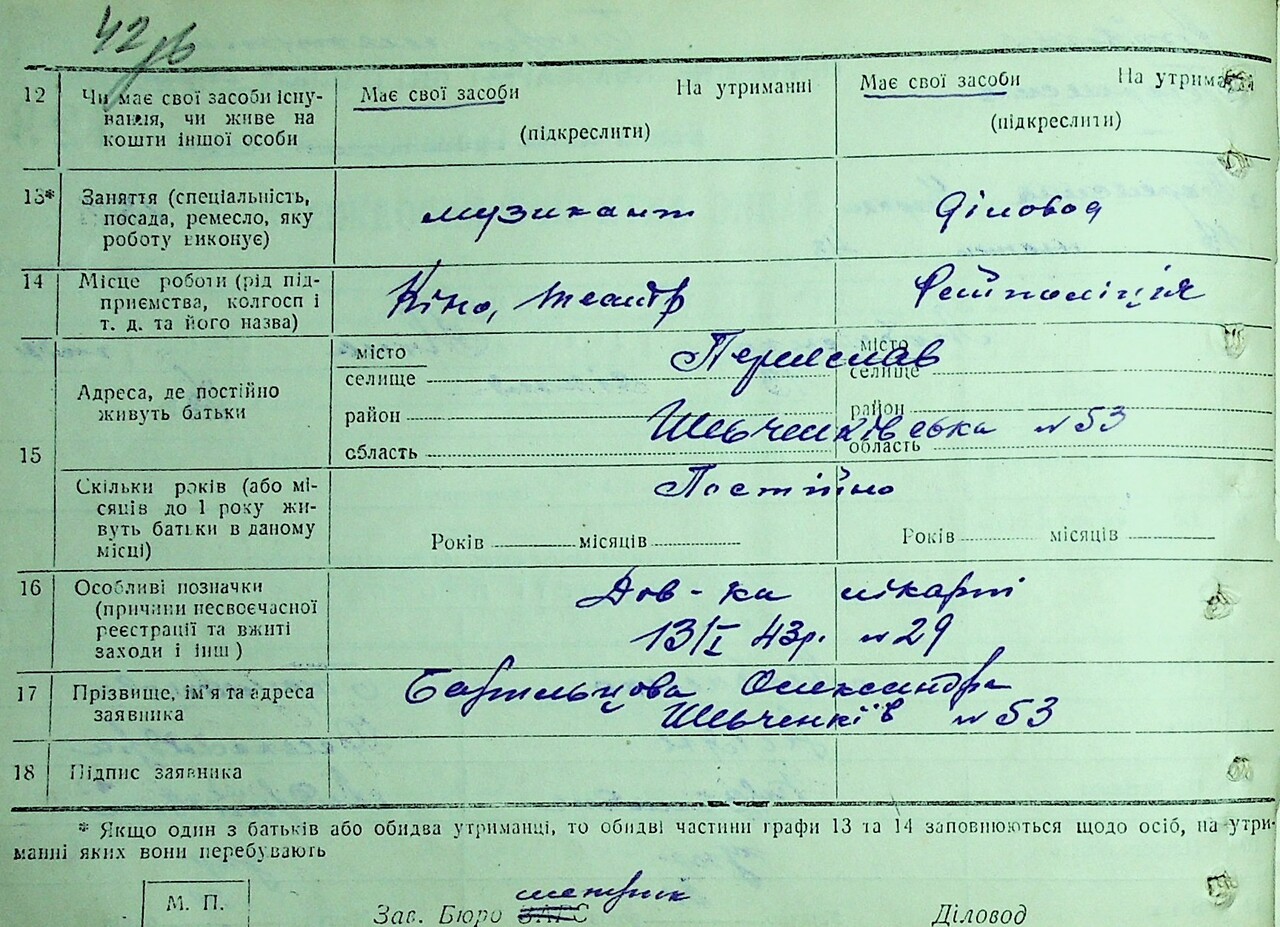 42зв
12 Чи має свої засоби існу- Має свої засоби На утриманні Має свої засоби На утрима
вання, чи живе на
кошти іншої особи (підкреслити) (підкреслити)
13* Заняття (спеціальність,
посада, ремесло, яку музикант Діловод
роботу виконує)
14 Місце роботи (рід під-
приємства, колгосп і Кіно, театр Рейполіція
т. д. та його назва)
15 Адреса, де постійно
живуть батьки
місто місто
Переяслав
селище селище
район район
Шевченківська №53
область область
Скільки років (або мі- Постійно
сяців до 1 року жи-
вуть батьки в даному
місці) Років місяців Років місяців
16 Особливі позначки Дов-ка лікарні
(причини несвоєчасної
реєстрації та вжиті 13/I 43р. №29
заходи і інш)
17 Прізвище, ім'я та адреса Олександра
заявника Шевченків №53
18 Підпис заявника
* Якщо один з батьків або обидва утриманці, то обидві частини графи 13 та 14 заповнюються щодо осіб, на утри-
манні яких вони перебувають
М. П.
метрик
Зав. Бюро ЗАГС Діловод